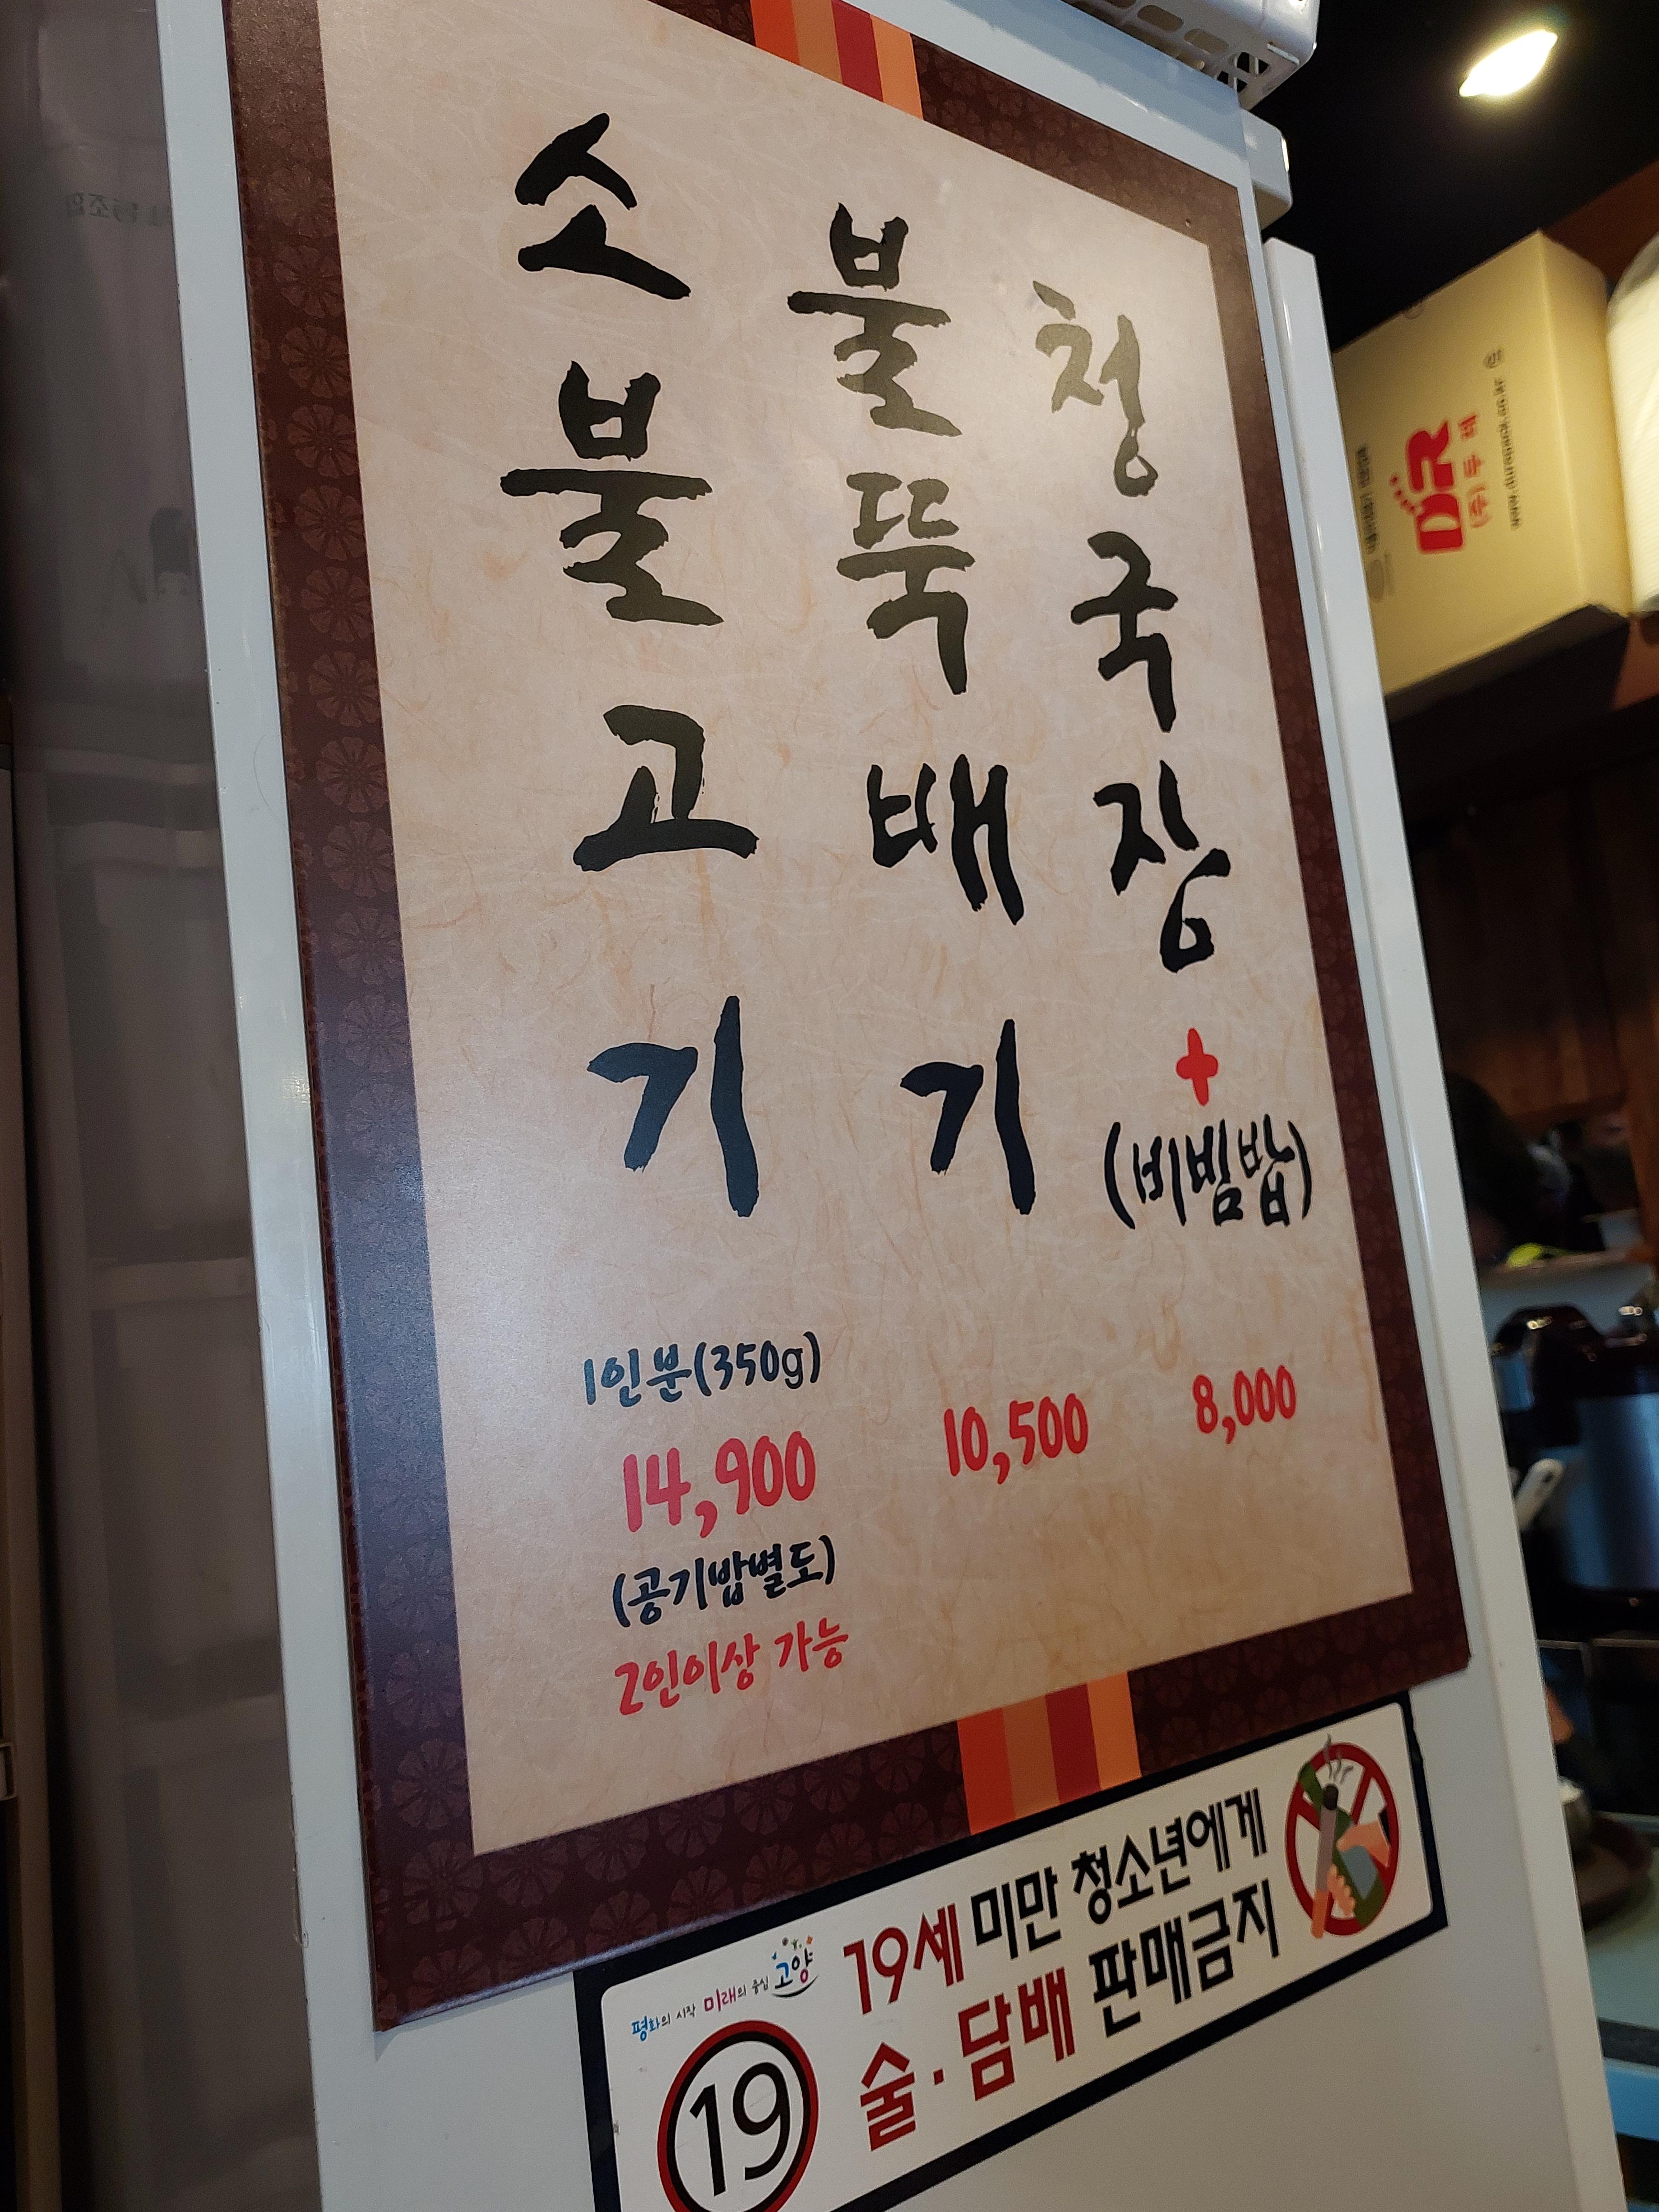 소불고기
불뚝배기
청국장
+
(비빔밥)
1인분(350g)
14,900
(공기밥별도)
2인이상 가능
10,500
8,000
평화의 시작 미래의 중심 고양
19세 미만 청소년에게
술·담배 판매금지
19
DR